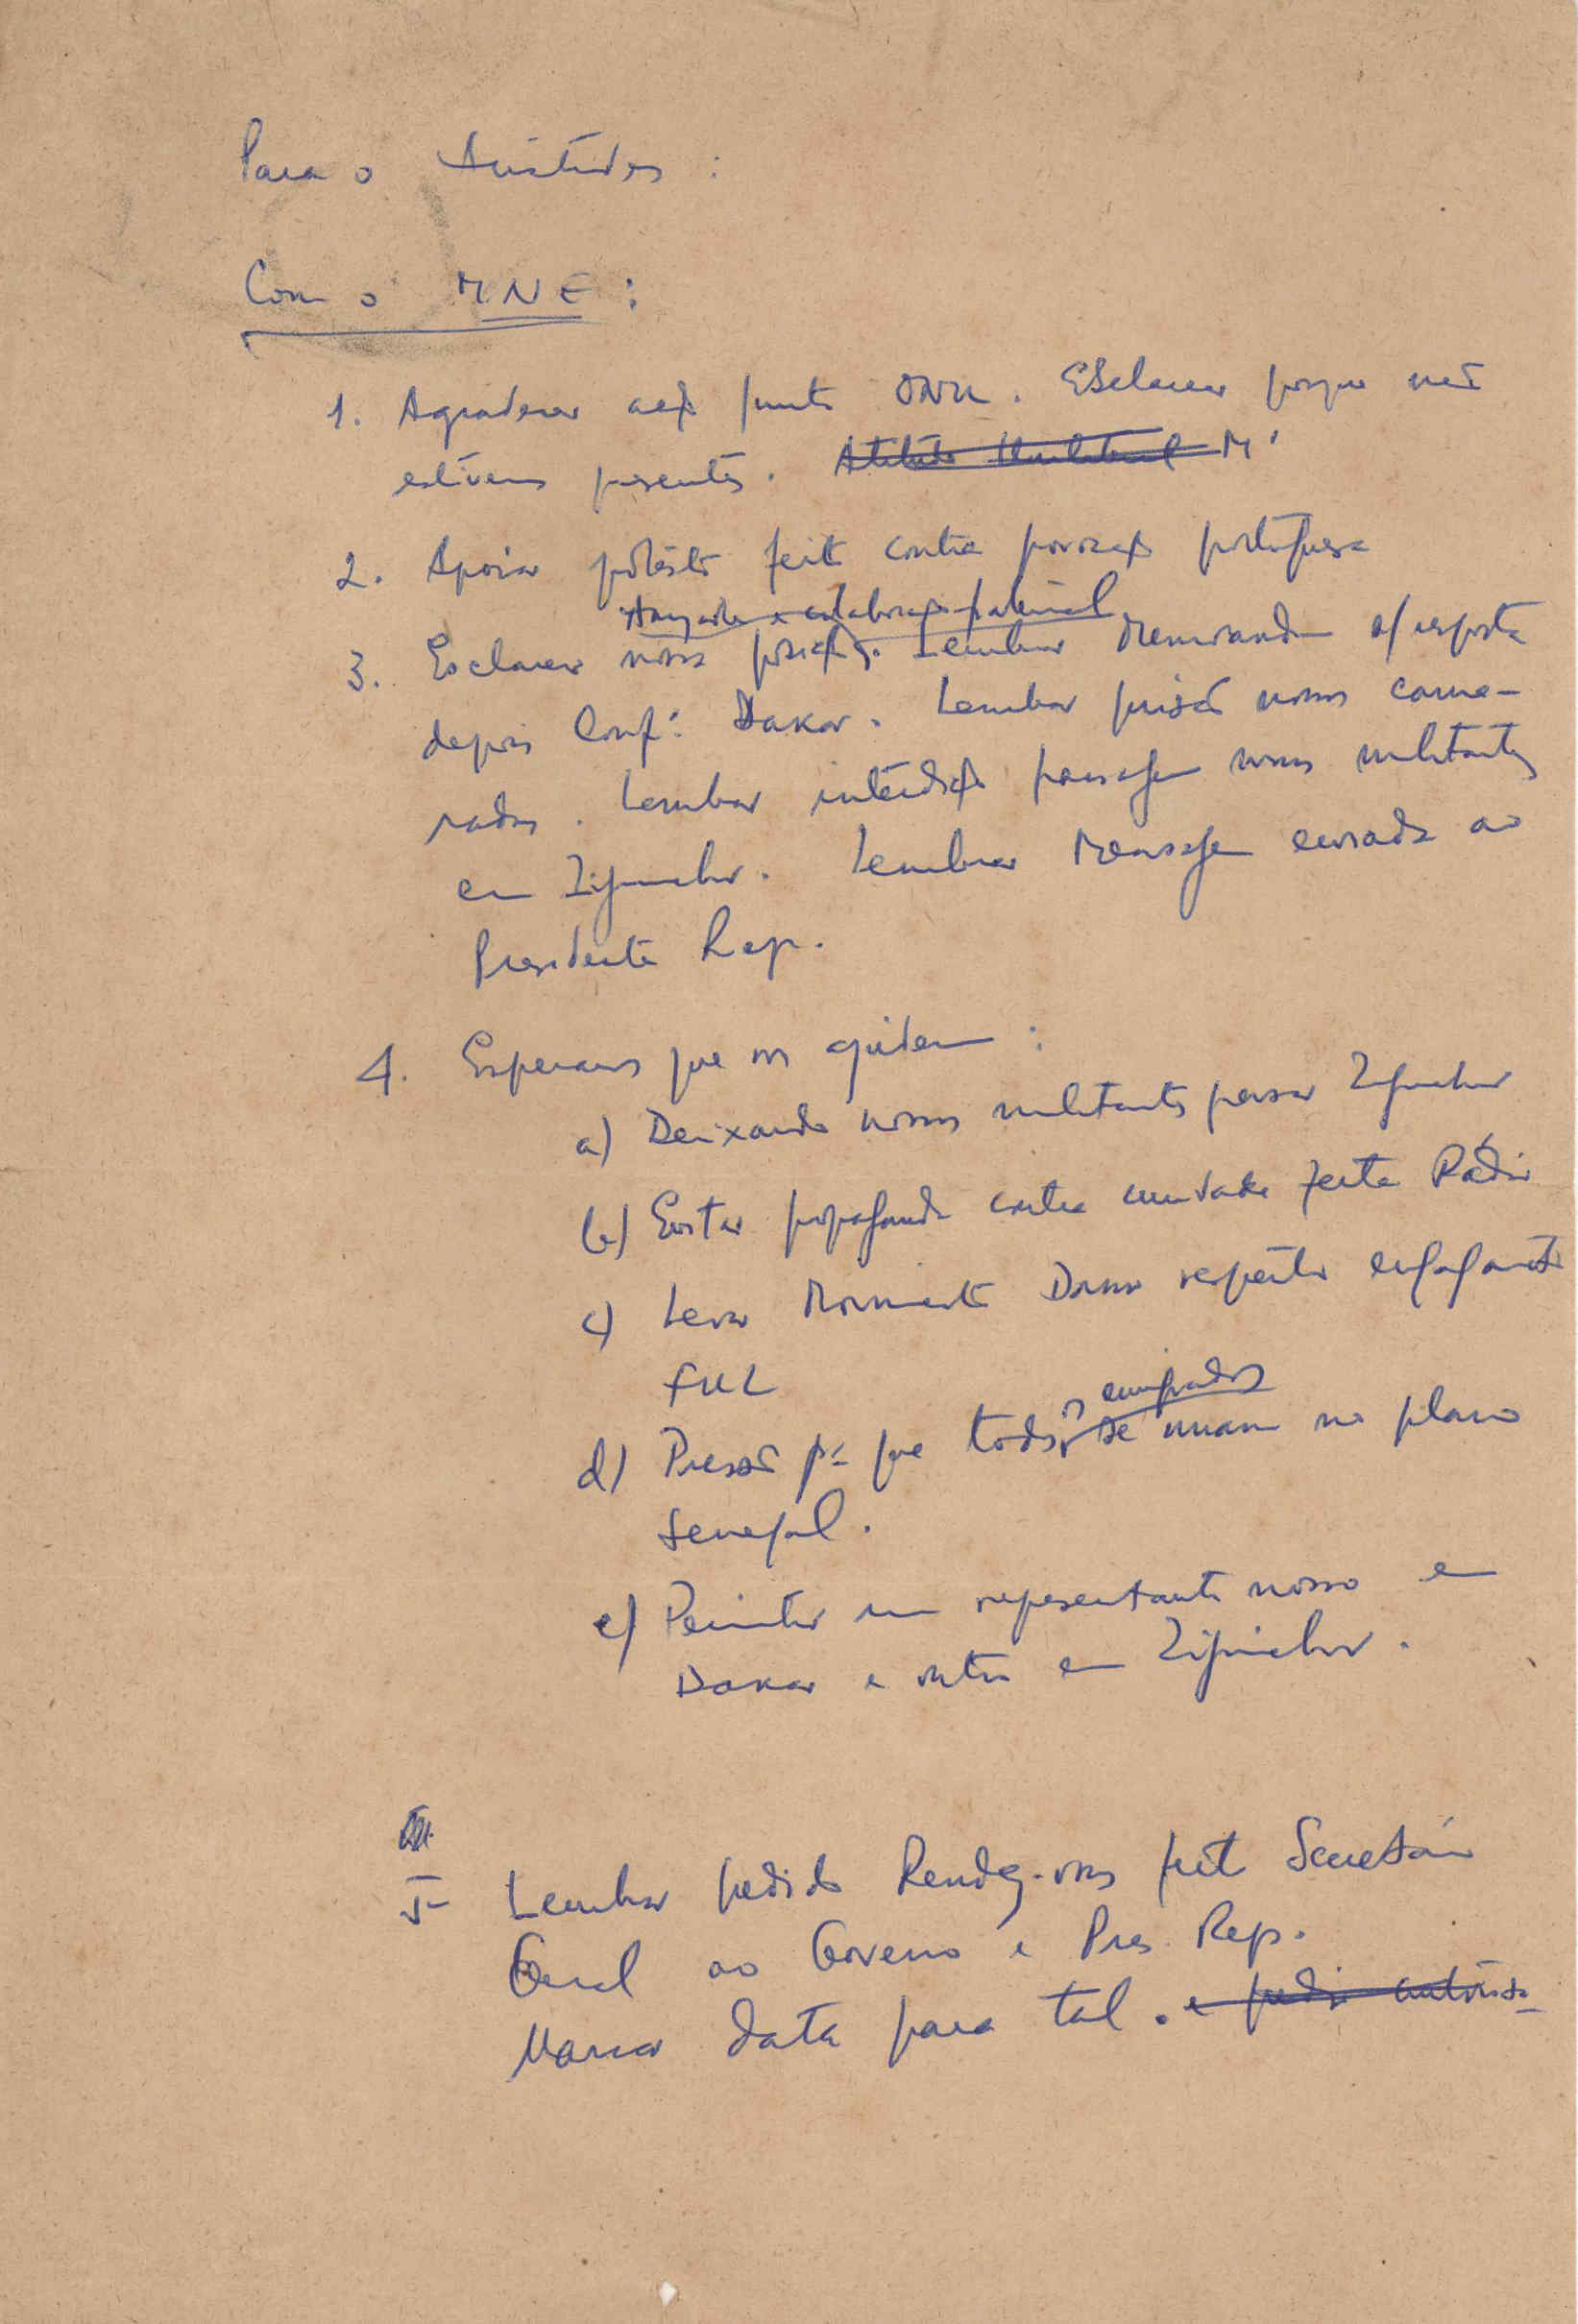 Para o Aristides :
Com o MNE :
1. Agradecer acção junto ONU. Esclarecer porque não
estivemos presentes.
2. Apoiar protesto feito contra provocação portuguesa
amizade e colaboração fraternal
3. Esclarecer nossa posição. Lembrar Memorandum s/ resposta
depois Conf: Dakar. Lembrar prisão nossos cama-
radas. Lembrar interdição passagem nossos militantes
em Ziguinchor. Lembrar Mensagem enviada ao
Presidente Rep.
4. Esperamos que nos ajudem :
a) Deixando nossos militantes passar Ziguinchor
b) Evitar propaganda contra unidade feita Rádio
c) Levar Movimento Dakar respeitar
FUL
os emigrados
d) Pressão pª que todos se unam no plano
Senegal.
e) Permitir um representante nosso em
Dakar e outro em Ziguinchor.
5- Lembrar pedido Rendez-vous feito Secretário
Geral ao Governo e Pres. Rep.
Marcar data para tal. e pedir autorisa-